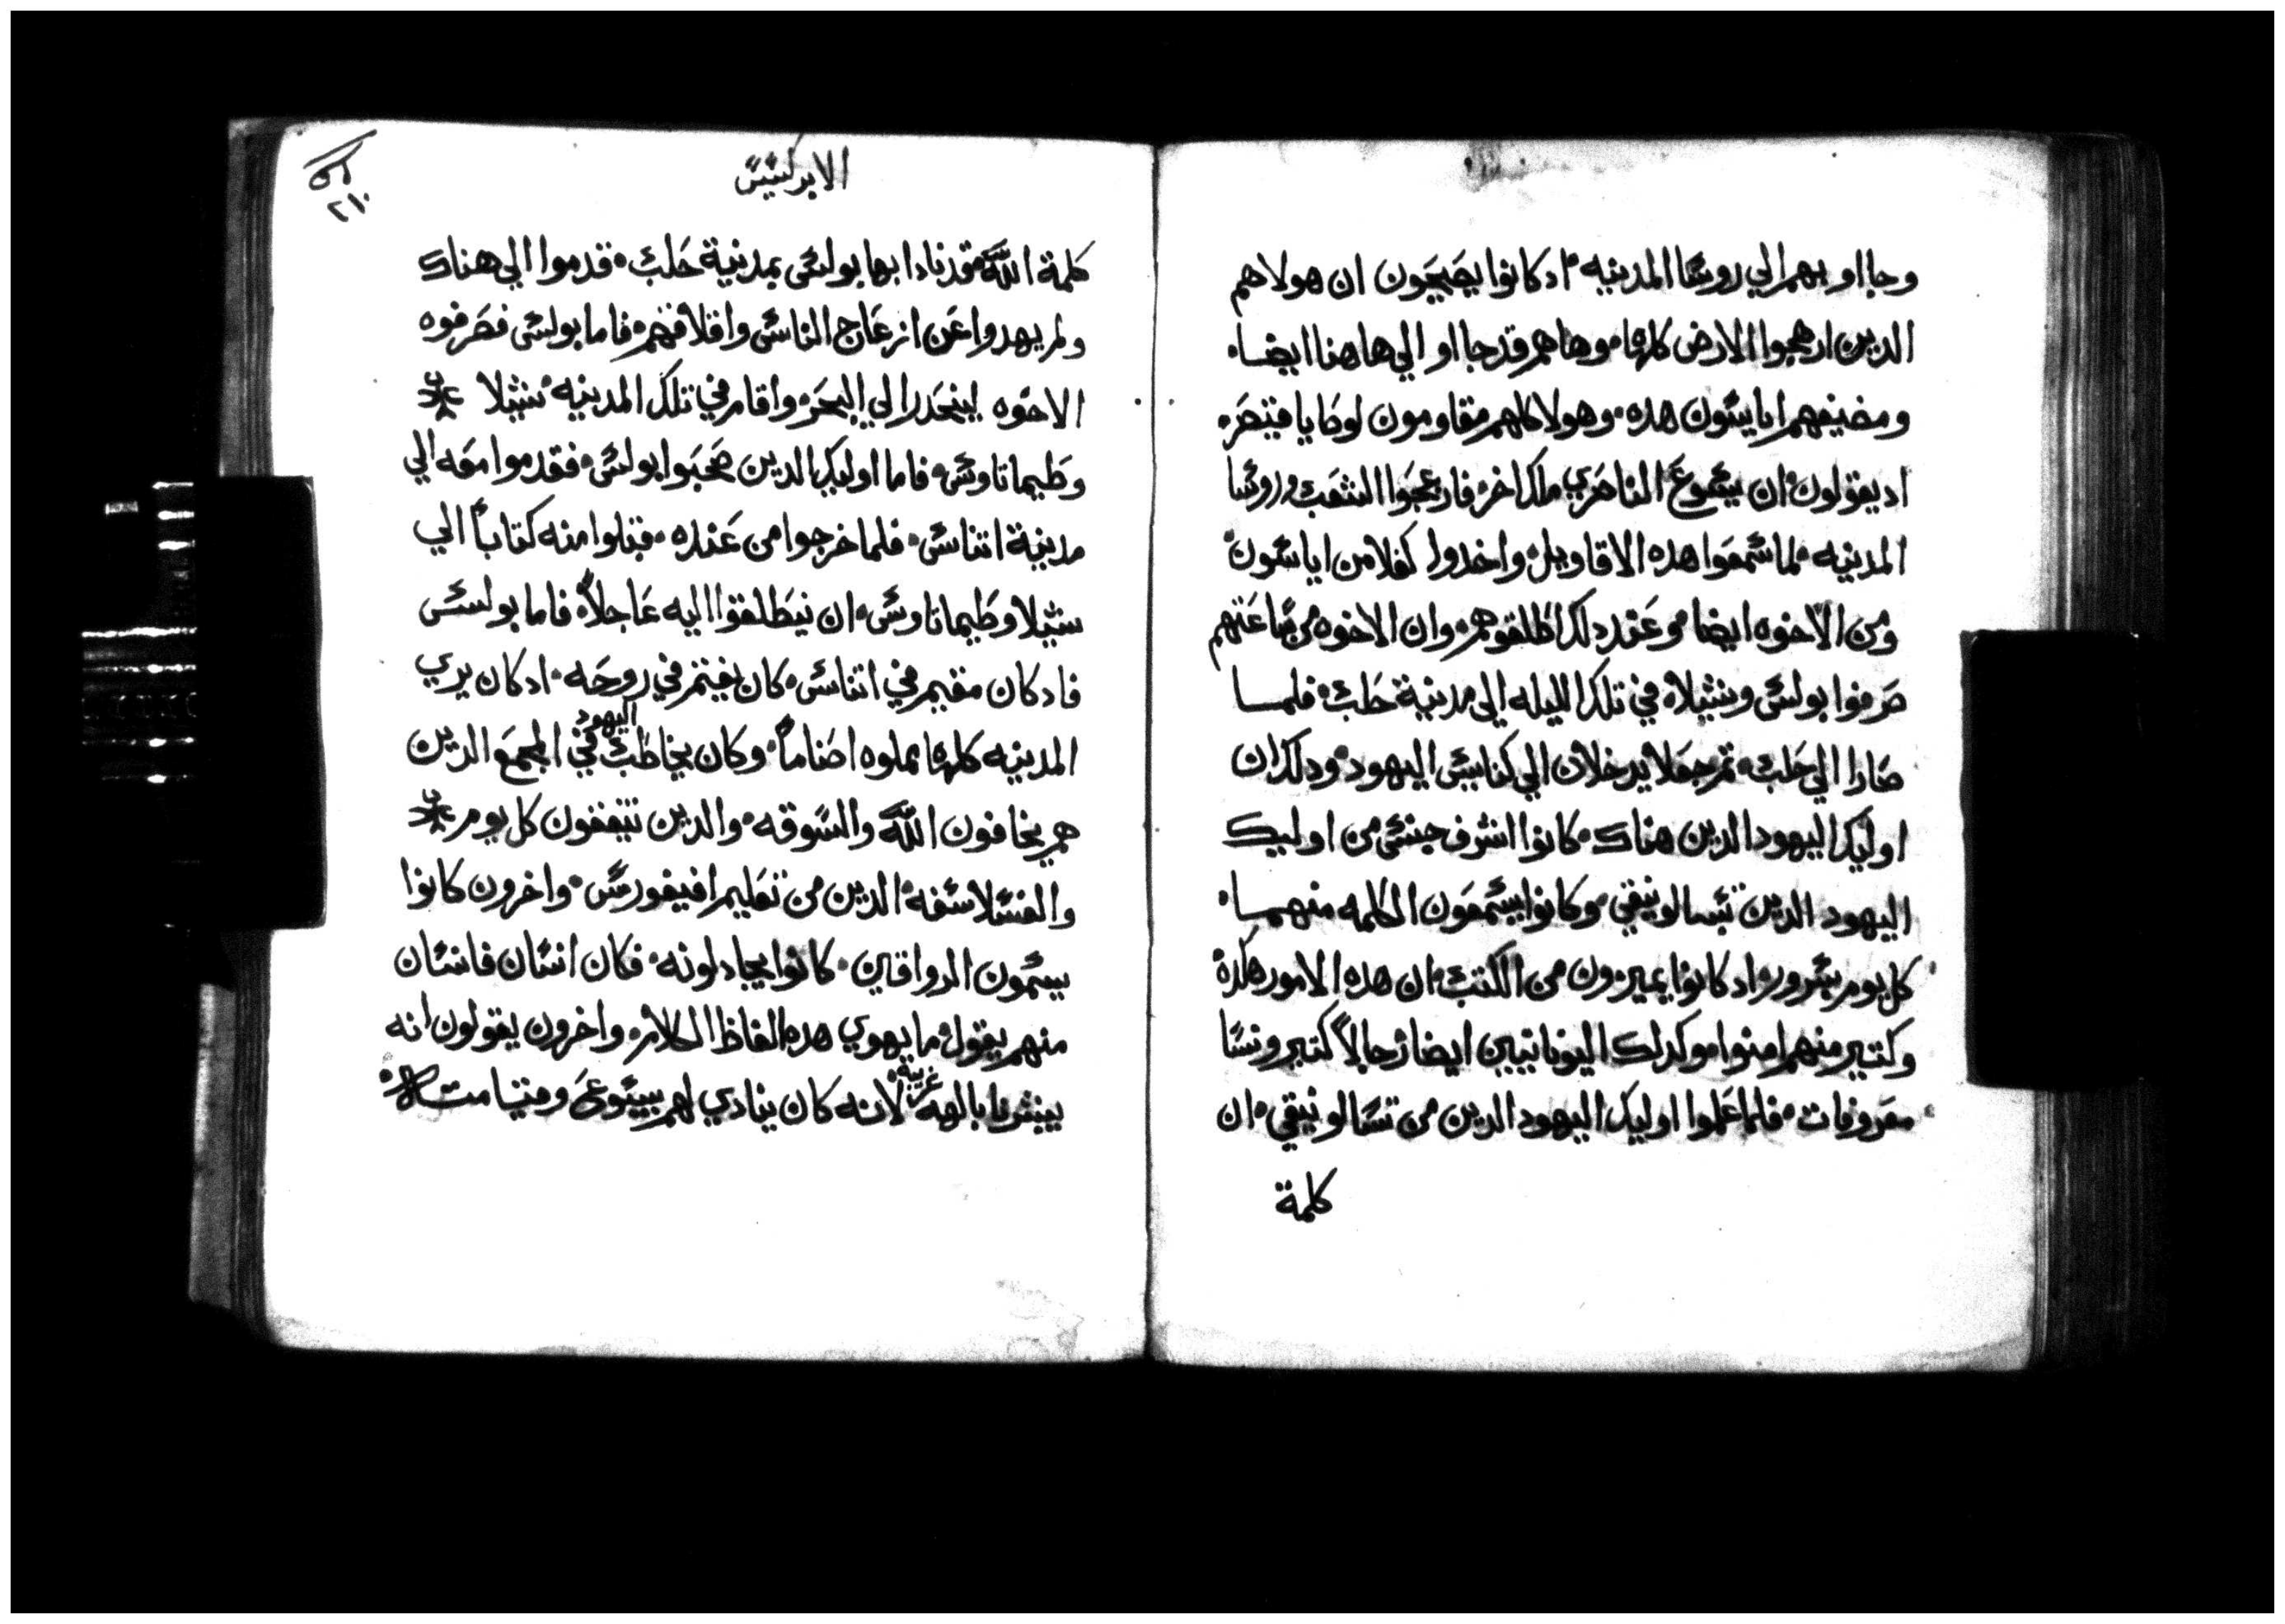 وجااو بهم الي روسا المدينه اد كانوا يصيحون ان هولا هم
الدين ارهجوا الارض كلها وها هم قد جااو الي هاهنا ايضا
ومضيفهم اياسون هده وهولا كلهم مقاومون لوصايا قيصر
اد يقولون ان يسوع الناصري ملك اخر فارعجوا الشعب وروسا
المدينه لما سمعوا هده الاقاويل واخدوا كفلا من اياسون
ومن الاخوه ايضا وعند دلك اطلقوهم وان الاخوه من ساعتهم
صرفوا بولس وشيلا في تلك الليله الي مدينة حلب فلما
صارا الي حلب تم جعلا يدخلان الي كنايس اليهود ودلك ان
اوليك اليهود الدين هناك كانوا اشرف جنس من اوليك
اليهود الدين بتسالونيقي وكانوا يسمعون الكلمه منهما
كل يوم بسرور اد كانوا يميزون من الكتب ان هده الامور هكدة
وكتير منهم امنوا وكدلك اليونانيين ايضا رجالاً كتير ونسا
معروفات فلما علموا اوليك اليهود الدين من تسالونيقي ان
كلمة
الابركسيس
٢١٠
كلمة الله قد نادا بها بولس بمدينة حلب قدموا الي هناك
ولم يهدوا عن ازعاج الناس واقلاقهم فاما بولس فصرفوه
الاخوه لينحدر الي البحر واقام في تلك المدينه شيلا
وطيماتاوس فاما اوليك الدين صحبوا بولس فقدموا معه الي
مدينة اتناس فلما خرجوا من عنده قبلوا منه كتاباً الي
شيلا وطيماتاوس ان ينطلقوا اليه عاجلاً فاما بولس
فاد كان مقيم في اتناس كان يغتم في روحه اد كان يري
المدينه كلها مملوه اصناماً وكان يخاطب اليهود في المجمع الدين
هم يخافون الله والسوقه والدين يتفقون كل يوم
والفسلاسفه الدين من تعليم افيغورس واخرون كانوا
يسمون الرواقين كانوا يجادلونه فكان انسان فانسان
منهم يقول ما يهوي هده الفاظ الكلام واخرون يقولون انه
يبشرنا بالهه غريبه لانه كان ينادي لهم بيسوع وقيامته